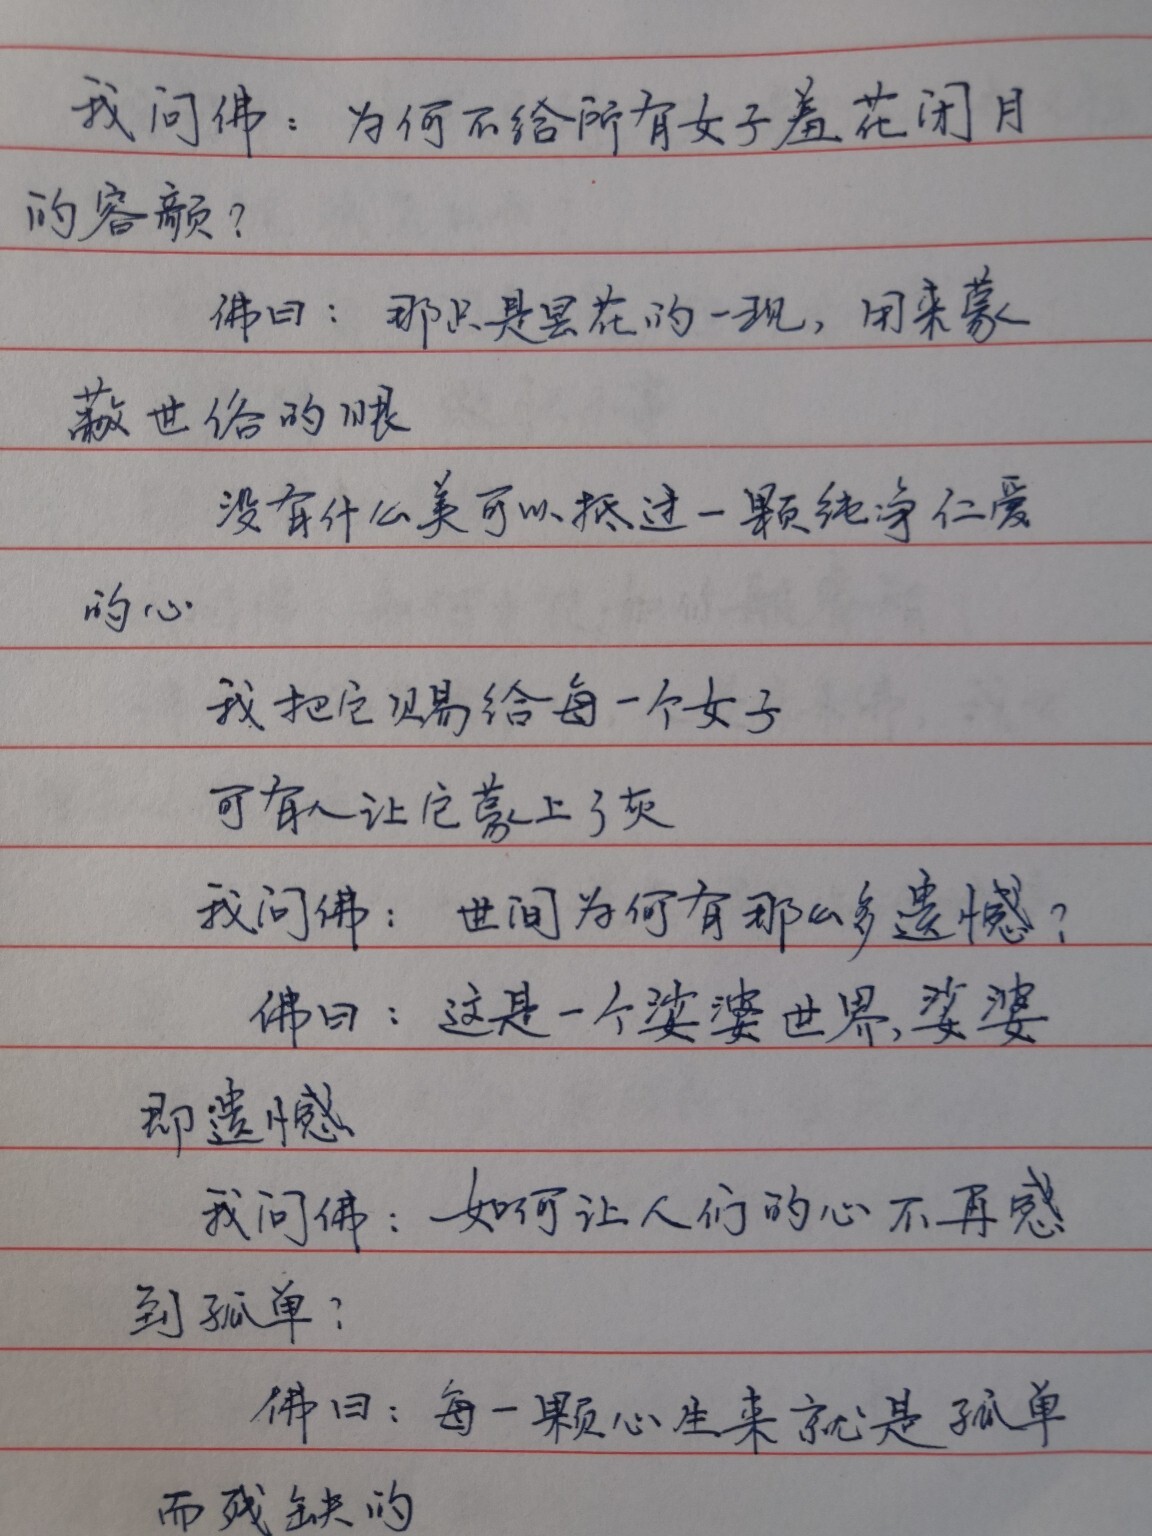 我问佛：为何不给所有女子羞花闭月
的容颜？
佛曰：那只是昙花的一现，用来蒙
蔽世俗的眼
没有什么美可以抵过一颗纯净仁爱
的心
我把它赐给每一个女子
可有人让它蒙上了灰
我问佛：世间为何有那么多遗憾？
佛曰：这是一个娑婆世界，娑婆
即遗憾
我问佛：如何让人们的心不再感
到孤单？
佛曰：每一颗心生来就是孤单
而残缺的